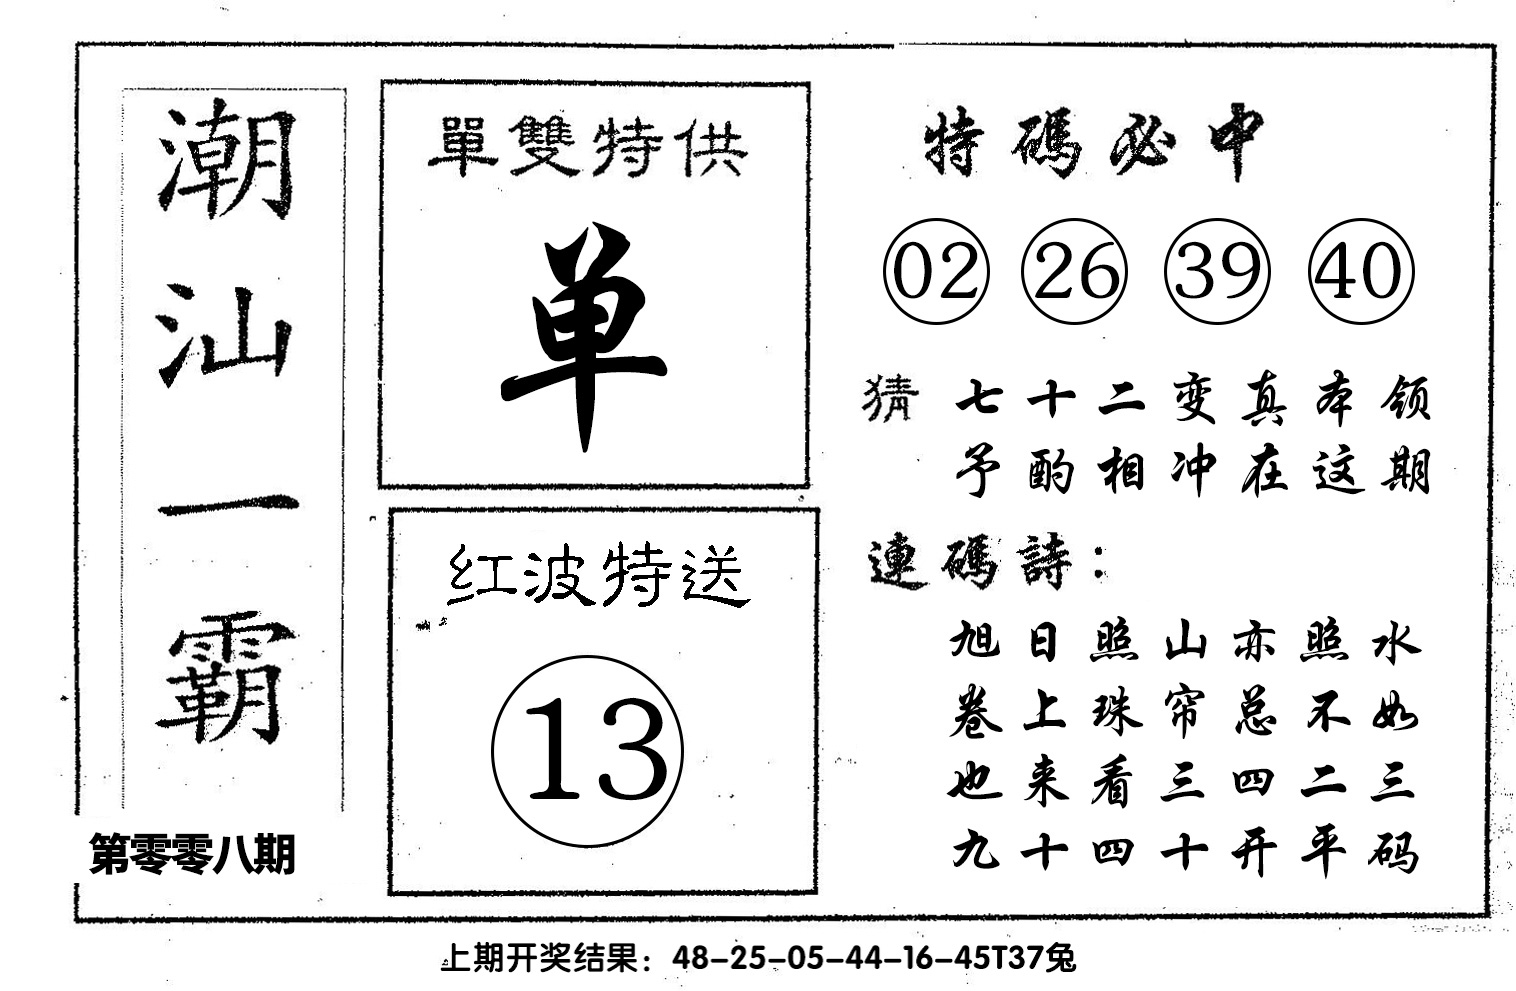 潮汕一霸
第零零八期
單雙特供
单
红波特送
13
特碼必中
02 26 39 40
猜 七十二变真本领
予酌相冲在这期
連碼詩：
旭日照山亦照水
卷上珠帘总不如
也来看三四二三
九十四十开平码
上期开奖结果：48-25-05-44-16-45T37兔